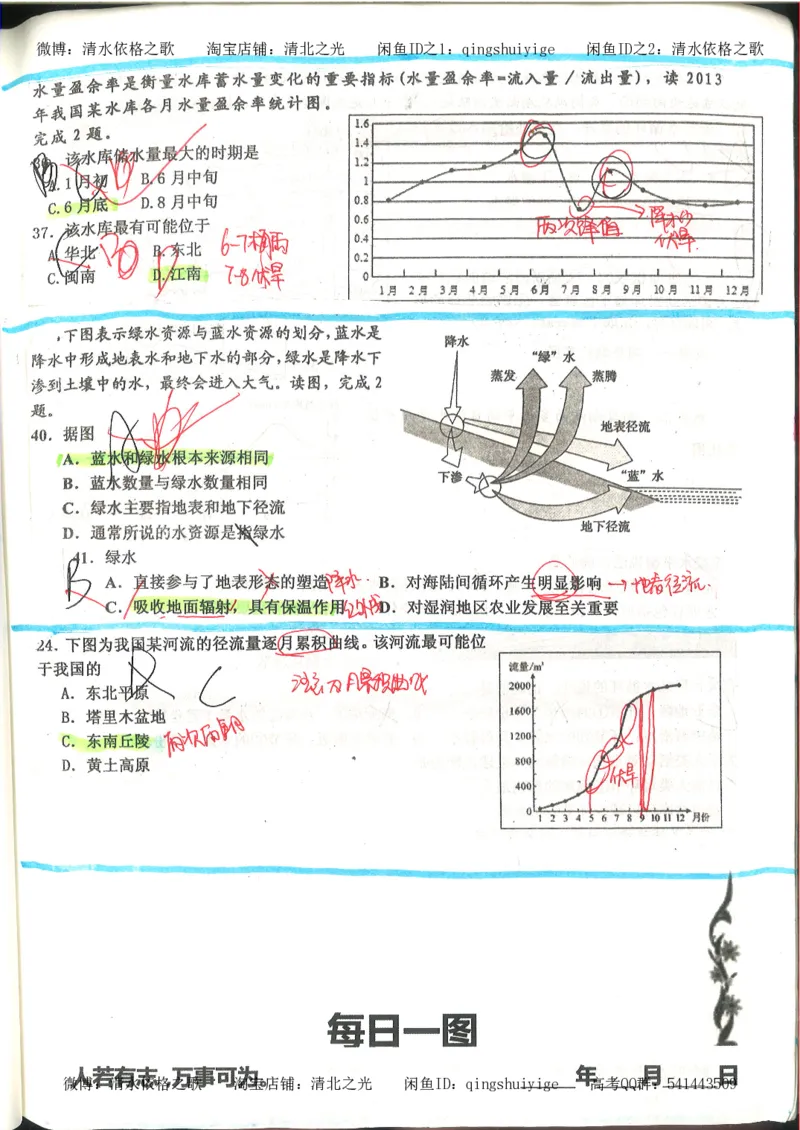 微博：清水依格之歌　　淘宝店铺：清北之光　　闲鱼ID之1：qingshuiyige　　闲鱼ID之2：清水依格之歌
水量盈余率是衡量水库蓄水量变化的重要指标(水量盈余率=流入量／流出量)，读 2013
年我国某水库各月水量盈余率统计图，
完成 2 题。
该水库储水量最大的时期是
A.1 月初　B.6 月中旬
C.6 月底　D.8 月中旬
37．该水库最有可能位于
A.华北　B.东北
C.闽南　D.江南
6-7梅雨
7-8伏旱
1.6
1.4
1.2
1
0.8
0.6
0.4
0.2
0
1月 2月 3月 4月 5月 6月 7月 8月 9月 10月 11月 12月
两次降值
降水少
伏旱
下图表示绿水资源与蓝水资源的划分，蓝水是
降水中形成地表水和地下水的部分，绿水是降水下
渗到土壤中的水，最终会进入大气。读图，完成 2
题。
40．据图
A．蓝水和绿水根本来源相同
B．蓝水数量与绿水数量相同
C．绿水主要指地表和地下径流
D．通常所说的水资源是指绿水
降水
“绿”水
蒸发
蒸腾
地表径流
下渗
“蓝”水
地下径流
41．绿水
A．直接参与了地表形态的塑造　B．对海陆间循环产生明显影响
C．吸收地面辐射，具有保温作用　D．对湿润地区农业发展至关重要
降水
B
24．下图为我国某河流的径流量逐月累积曲线。该河流最可能位
于我国的
A．东北平原
B．塔里木盆地
C．东南丘陵
D．黄土高原
C
注意为月累积曲线
伏旱
流量/m³
2000
1600
1200
800
400
0
1 2 3 4 5 6 7 8 9 10 11 12 月份
每日一图
人若有志，万事可为。　年　月　日
微博：清水依格之歌　　淘宝店铺：清北之光　　闲鱼ID：qingshuiyige　　高考QQ群：541443509